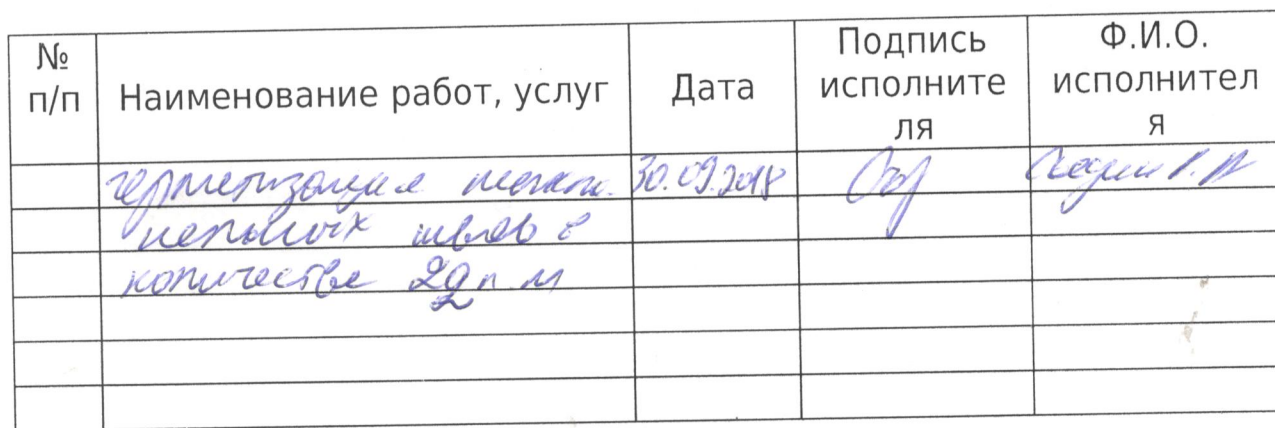 № п/п
Наименование работ, услуг
Дата
Подпись исполните ля
Ф.И.О. исполнител я
герметизация межпа- 30.09.2018
нельных швов в
количестве п м